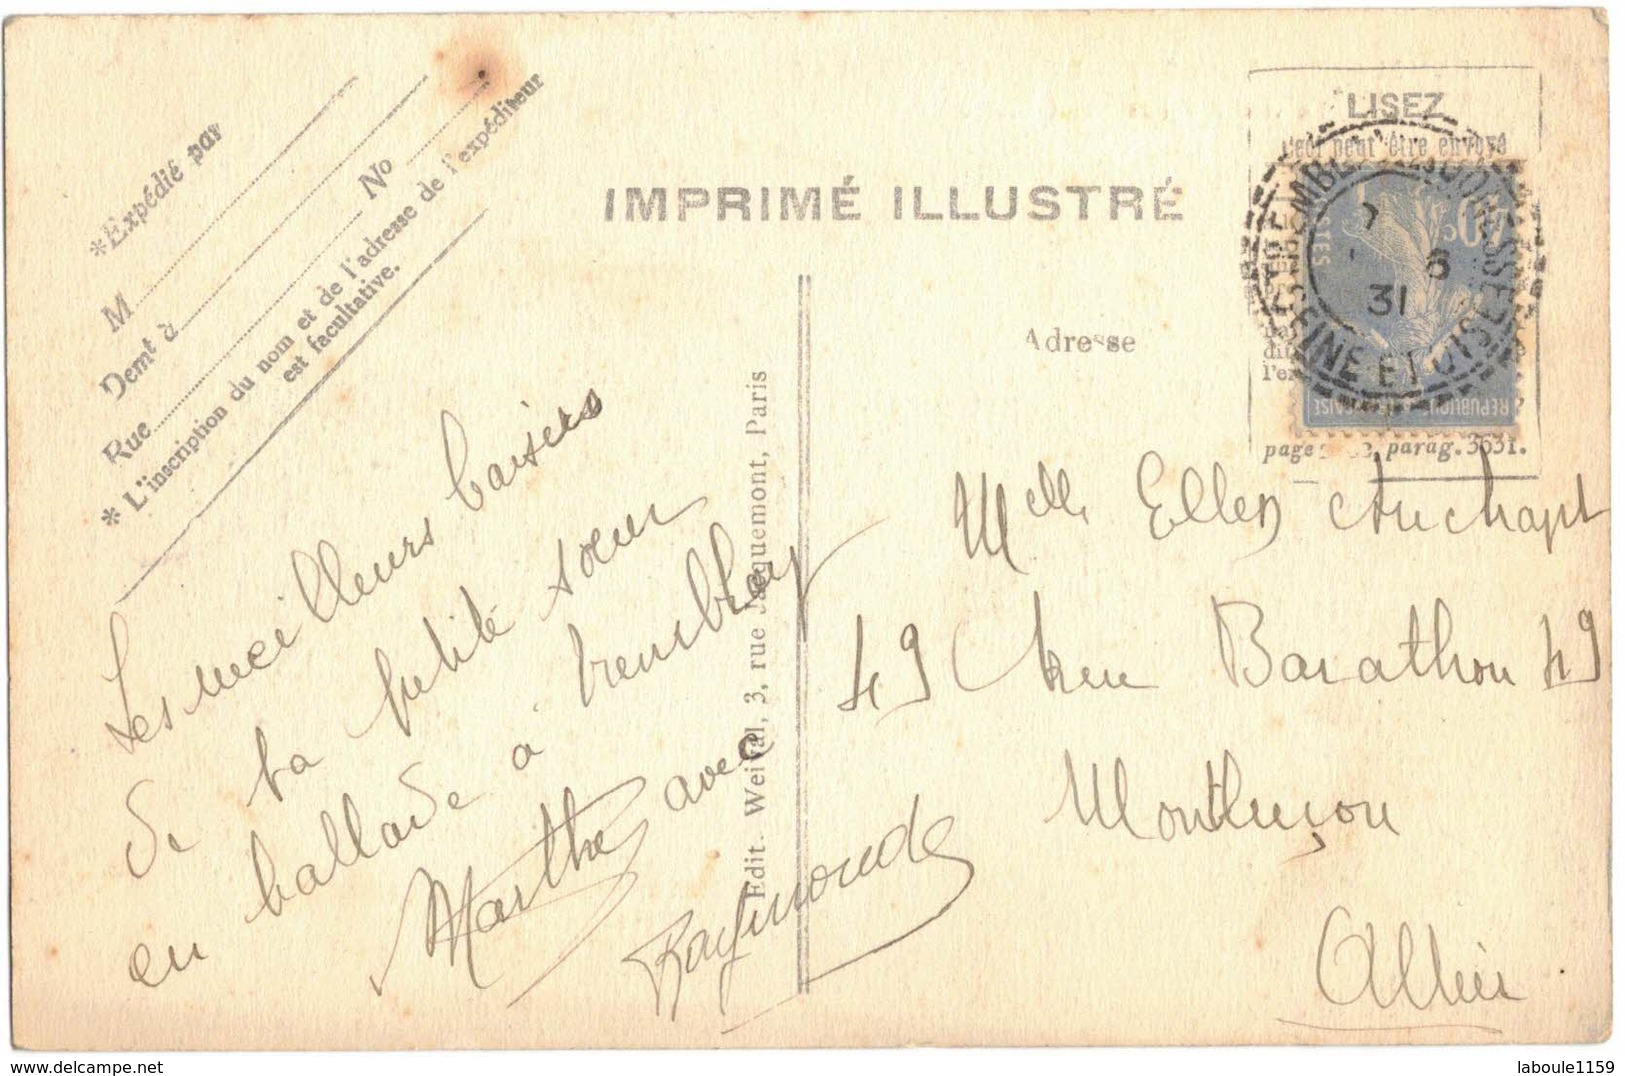 *Expédié par
M
Demt à
Rue
No
* L'inscription du nom et de l'adresse de l'expéditeur
est facultative.
IMPRIMÉ ILLUSTRÉ
LISEZ
Ceci peut être envoyé
7
6
31
SEINE ET OISE
POSTES
REPUBLIQUE FRANÇAISE
page parag. 3631.
Adresse
Les meilleurs baisers
de ta petite soeur
en ballade à Tremblay
Marthe avec
Raymonde
Edit. Weival, 3, rue Jacquemont, Paris
Melle Ellen
49 rue Barathon 49
Montluçon
Allier
laboule1159